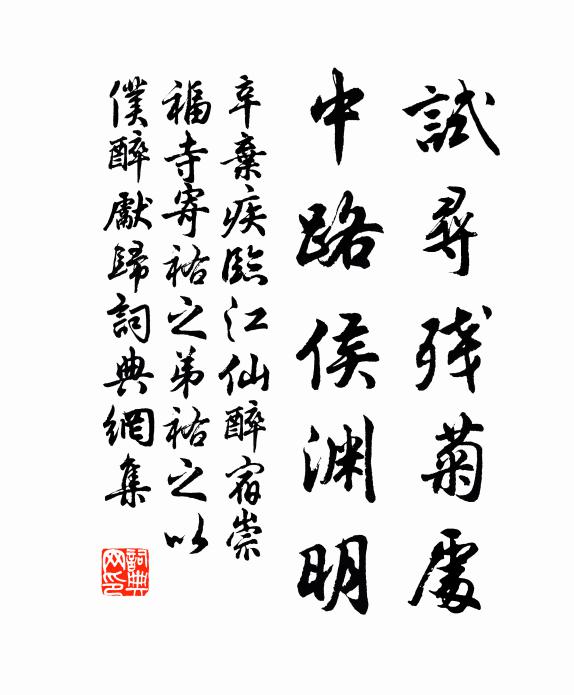 試尋残菊處
中路侯渊明
辛棄疾臨江仙醉宿崇
福寺寄祐之弟祐之以
僕醉獻歸詞典網集
詞典网印